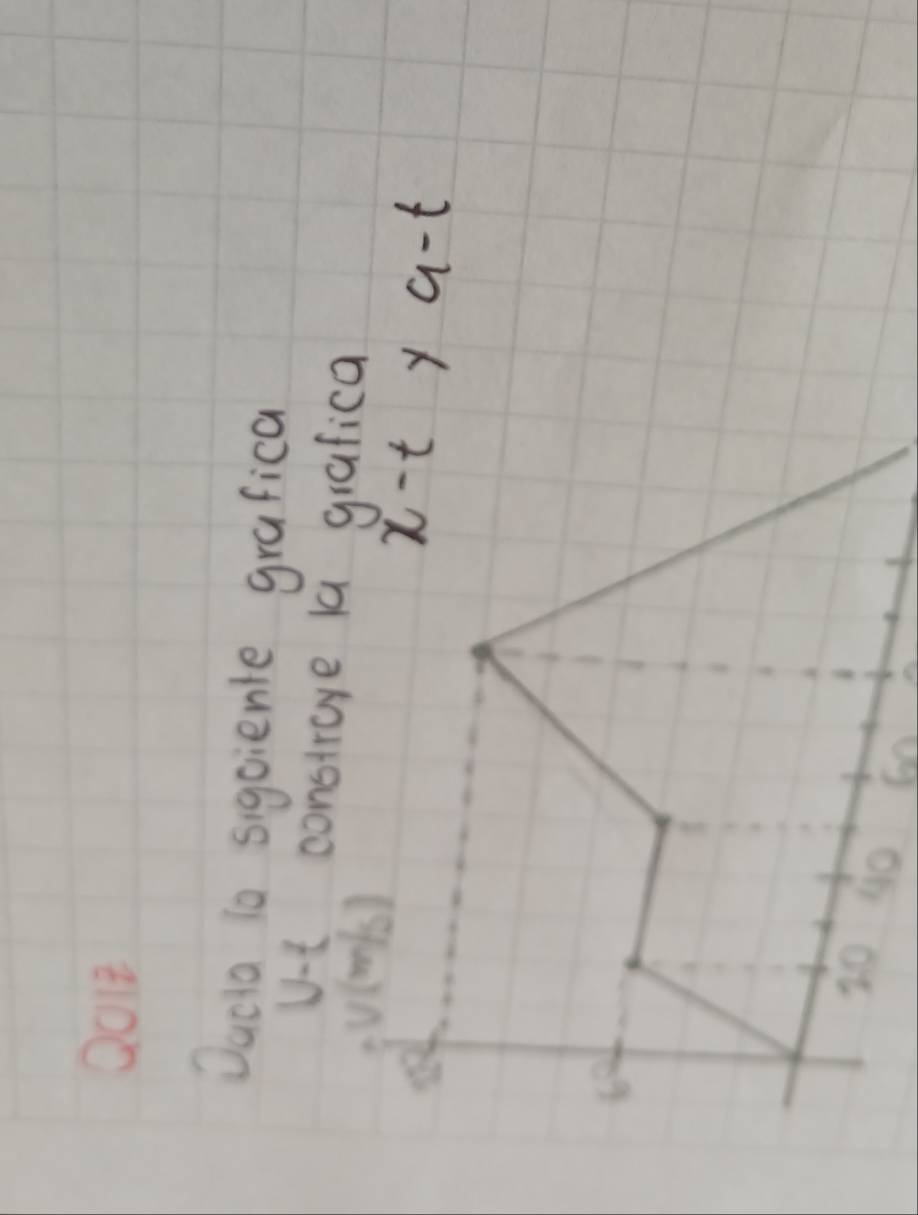 QUIZ
Dada la siguiente grafica
V-t construye la grafica
x-t y a-t
V(m/s)
60
20
40
60